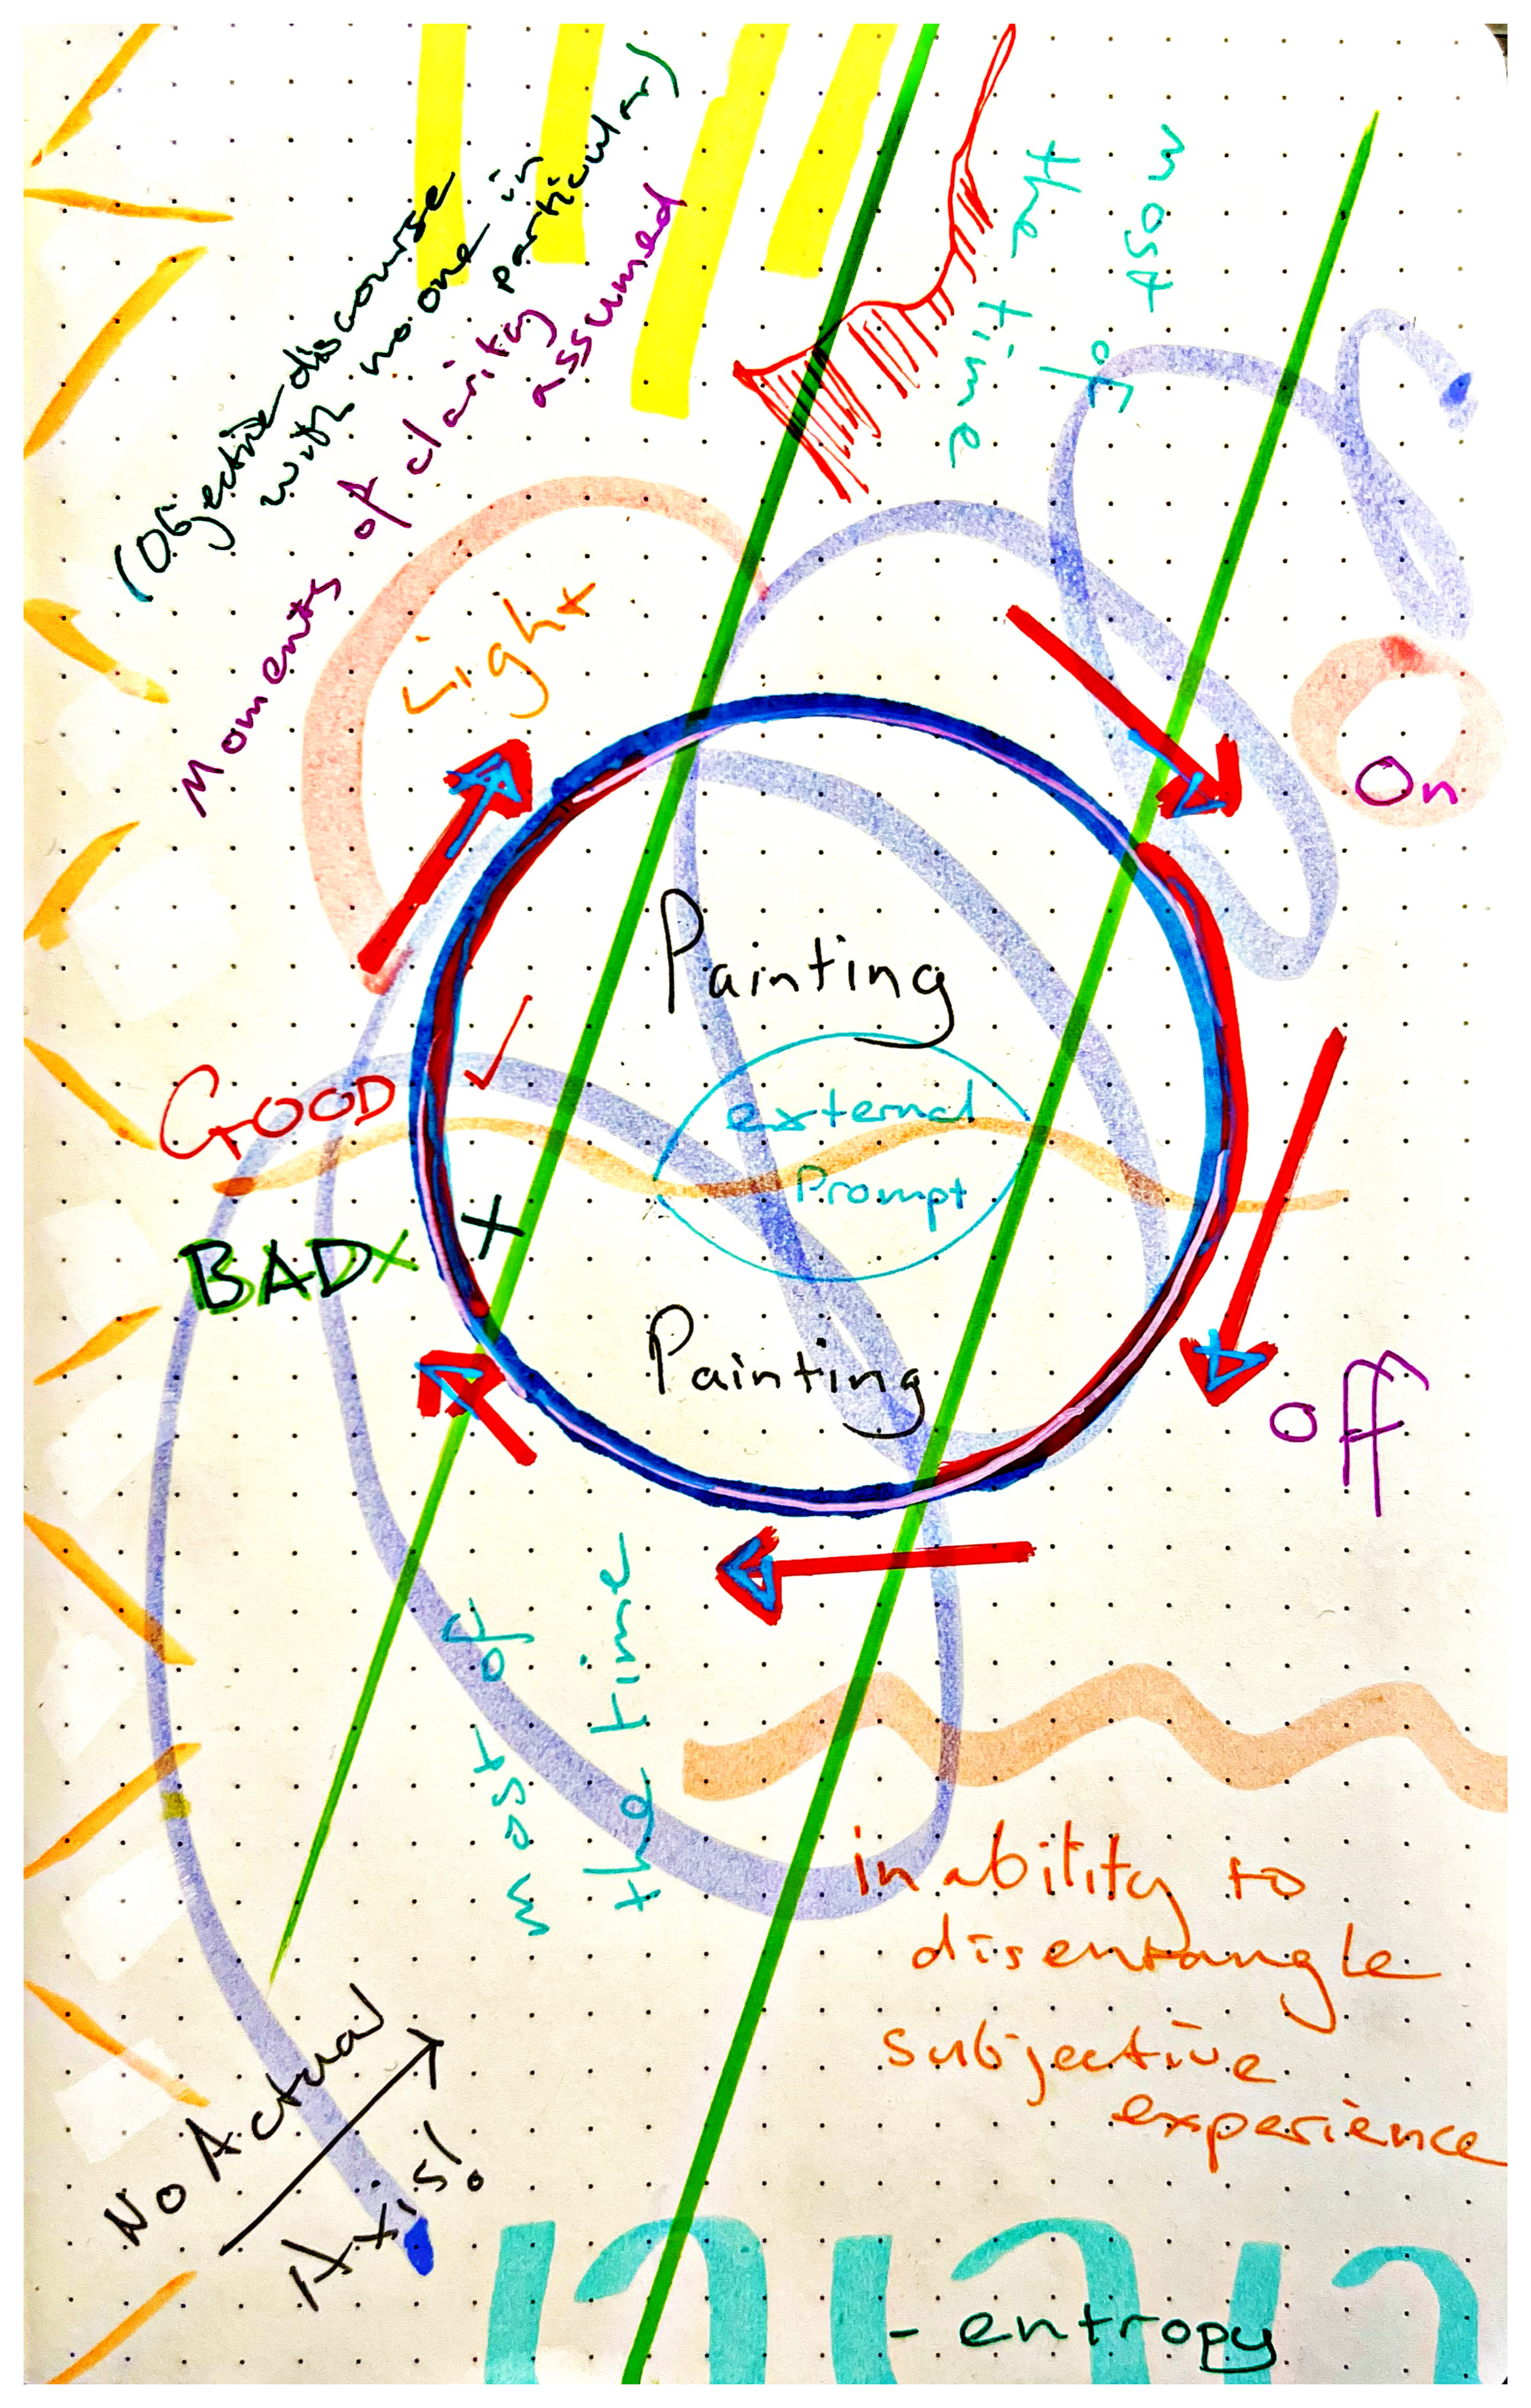 (Objective discourse
with no one in
particular)
Moments of clarity
assumed
most of
the time
Light
On
Painting
external
Prompt
Painting
GOOD ✓
BAD x X
off
most of
the time
inability to
disentangle
subjective
experience
No Actual
Axis!
- entropy